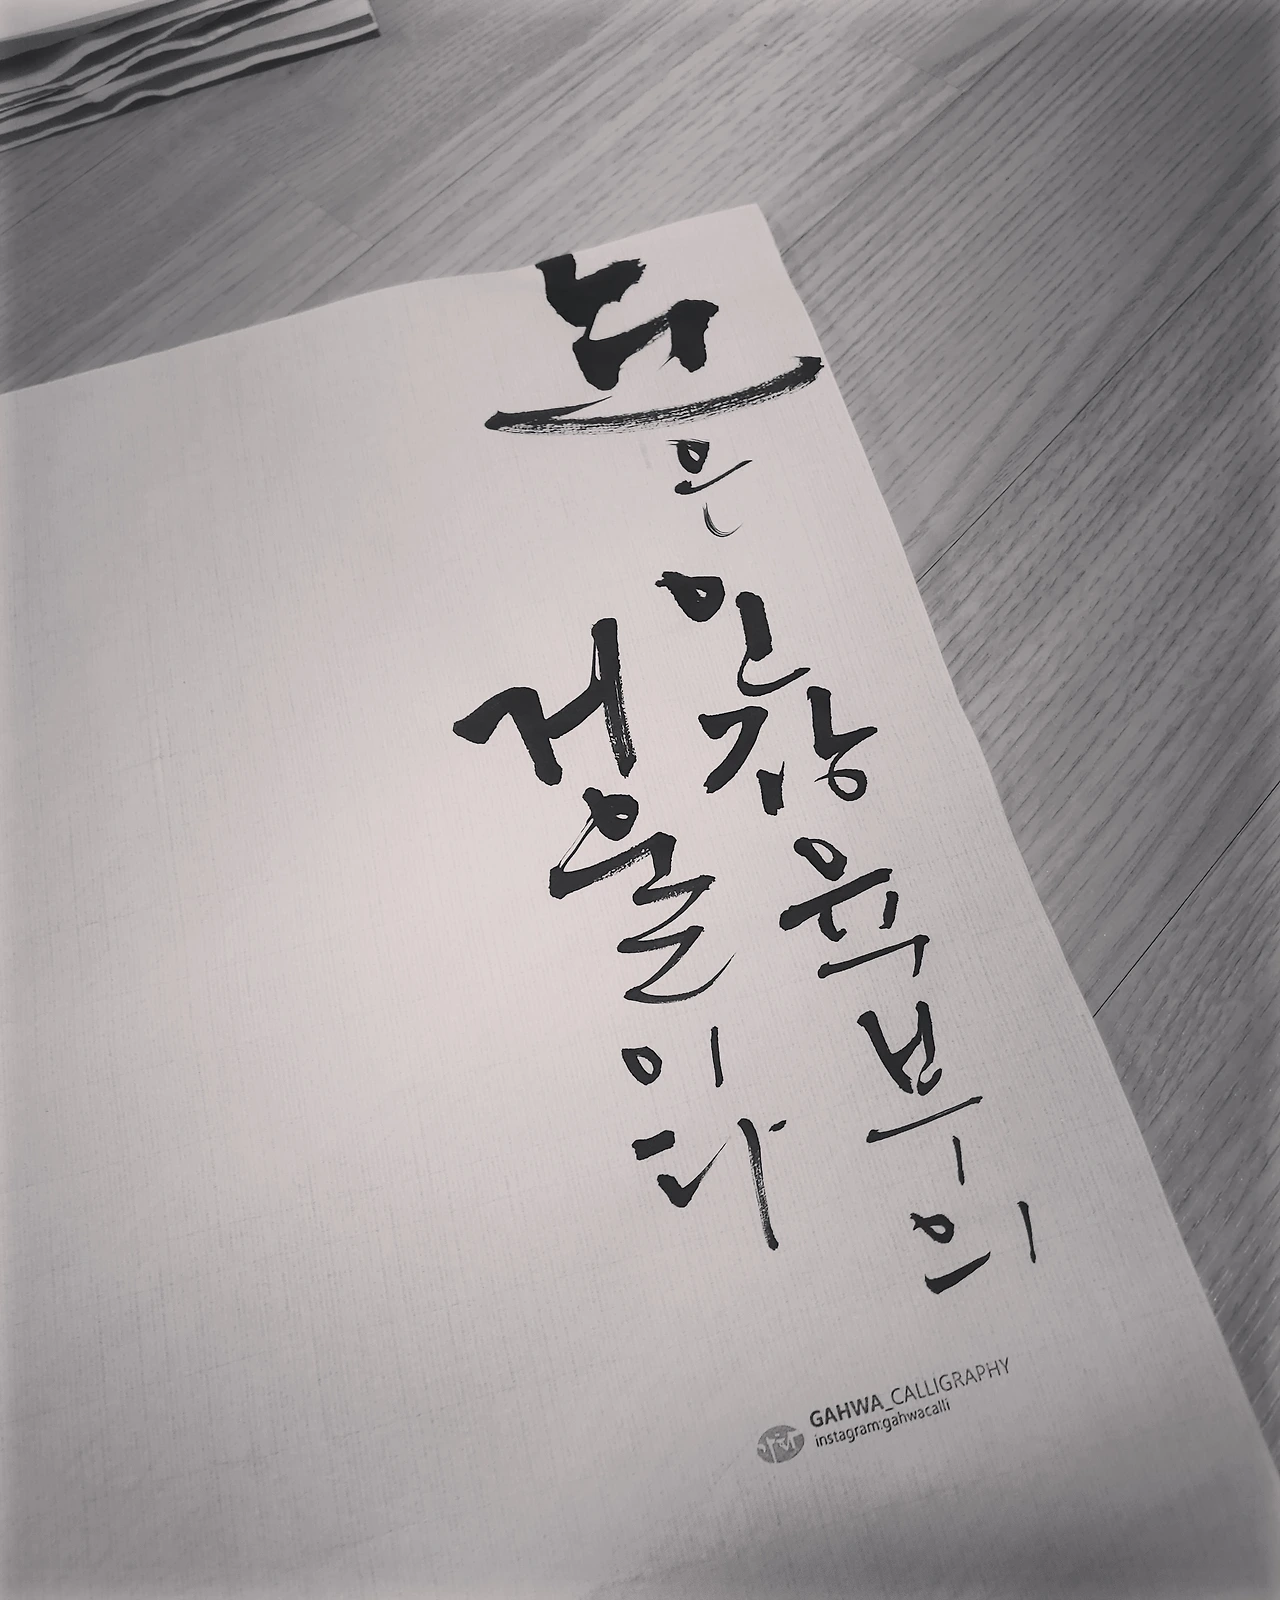 눈은
오장육부의
거울이다
GAHWA_CALLIGRAPHY
instagram:gahwacalli